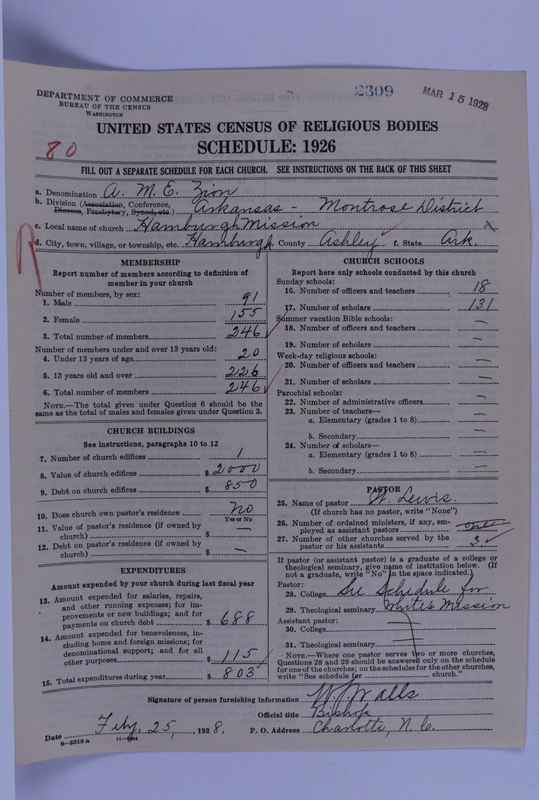 2309
MAR 15 1928
DEPARTMENT OF COMMERCE
BUREAU OF THE CENSUS
WASHINGTON
UNITED STATES CENSUS OF RELIGIOUS BODIES
SCHEDULE: 1926
80
FILL OUT A SEPARATE SCHEDULE FOR EACH CHURCH. SEE INSTRUCTIONS ON THE BACK OF THIS SHEET
a. Denomination A. M. E. Zion
b. Division (Association, Conference, Diocese, Presbytery, Synod, etc.) Arkansas - Montrose District
c. Local name of church Hamburgh Mission
d. City, town, village, or township, etc. Hamburgh County Ashley f. State Ark.
MEMBERSHIP
Report number of members according to definition of member in your church
Number of members, by sex:
1. Male 91
2. Female 155
3. Total number of members 246
Number of members under and over 13 years old:
4. Under 13 years of age 20
5. 13 years old and over 226
6. Total number of members 246
NOTE.—The total given under Question 6 should be the same as the total of males and females given under Question 3.
CHURCH BUILDINGS
See instructions, paragraphs 10 to 12
7. Number of church edifices 1
8. Value of church edifices $ 2000
9. Debt on church edifices $ 850
10. Does church own pastor's residence No
Yes or No
11. Value of pastor's residence (if owned by church) $ —
12. Debt on pastor's residence (if owned by church) $ —
EXPENDITURES
Amount expended by your church during last fiscal year
13. Amount expended for salaries, repairs, and other running expenses; for improvements or new buildings; and for payments on church debt $ 688
14. Amount expended for benevolences, including home and foreign missions; for denominational support; and for all other purposes $ 115
15. Total expenditures during year $ 803
CHURCH SCHOOLS
Report here only schools conducted by this church
Sunday schools:
16. Number of officers and teachers 18
17. Number of scholars 131
Summer vacation Bible schools:
18. Number of officers and teachers —
19. Number of scholars —
Week-day religious schools:
20. Number of officers and teachers —
21. Number of scholars —
Parochial schools:
22. Number of administrative officers —
23. Number of teachers—
a. Elementary (grades 1 to 8) —
b. Secondary —
24. Number of scholars—
a. Elementary (grades 1 to 8) —
b. Secondary —
PASTOR
25. Name of pastor W. Lewis.
(If church has no pastor, write "None")
26. Number of ordained ministers, if any, employed as assistant pastors one
27. Number of other churches served by the pastor or his assistants 3
If pastor (or assistant pastor) is a graduate of a college or theological seminary, give name of institution below. (If not a graduate, write "No" in the space indicated.)
Pastor:
28. College See Schedule for
29. Theological seminary White's Mission
Assistant pastor:
30. College
31. Theological seminary
NOTE.—Where one pastor serves two or more churches, Questions 28 and 29 should be answered only on the schedule for one of the churches; on the schedules for the other churches, write "See schedule for church."
Signature of person furnishing information W J Walls
Official title Bishop
Date Feby. 25, 1928. P. O. Address Charlotte, N. C.
8—5518a